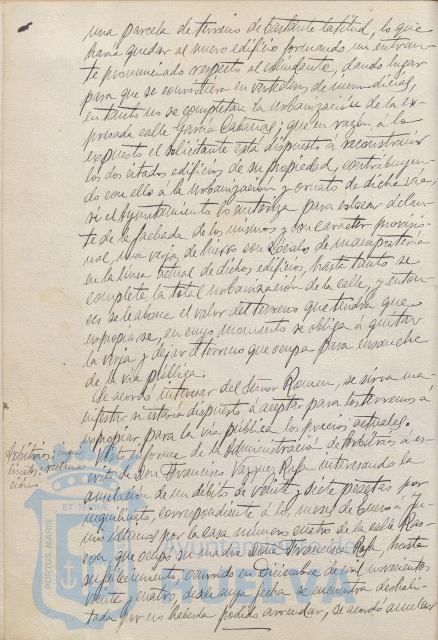 una parcela de terreno de bastante latitud, lo que
haría quedar al nuevo edificio formando un entran-
te pronunciado respecto al colindante, dando lugar
para que se convirtiera en vertedero de inmundicias,
en tanto no se completara la urbanización de la ex-
presada calle García Cabañas; que en razón á lo
expuesto el solicitante está dispuesto a reconstruir
los dos citados edificios de su propiedad, contribuyen-
do con ello a la urbanización y ornato de dicha vía,
si el Ayuntamiento lo autoriza para colocar delan-
te de la fachada de los mismos y con carácter provisio-
nal, una verja de hierro con zócalo de mampostería
en la línea actual de dichos edificios, hasta tanto se
complete la total urbanización de la calle, y enton-
ces se le abone el valor del terreno que tendrá que
expropiarse, en cuyo momento se obliga a quitar
la verja y dejar el terreno que ocupa para ensanche
de la vía pública.
Se acordó interesar del Señor Romeu, se sirva ma-
nifestar si estaría dispuesto a aceptar para los terrenos á
expropiar para la vía pública los precios actuales.
Arbitrios: inqui
linato; reclama
ción.
Visto informe de la Administración de Arbitrios a es-
crito de Don Francisco Vazquez Rafa interesando la
anulación de un débito de veinte y siete pesetas por
inquilinato, correspondiente a los meses de Enero á Ju-
nio últimos por la casa número cuatro de la calle
que ocupó su madre Doña Francisca Rafa, hasta
su fallecimiento, ocurrido en Diciembre de mil novecientos
veinte y cuatro, desde cuya fecha se encuentra deshabi-
tada por no haberla podido arrendar, se acordó anular
ET TERRA
PORTUS MARIS